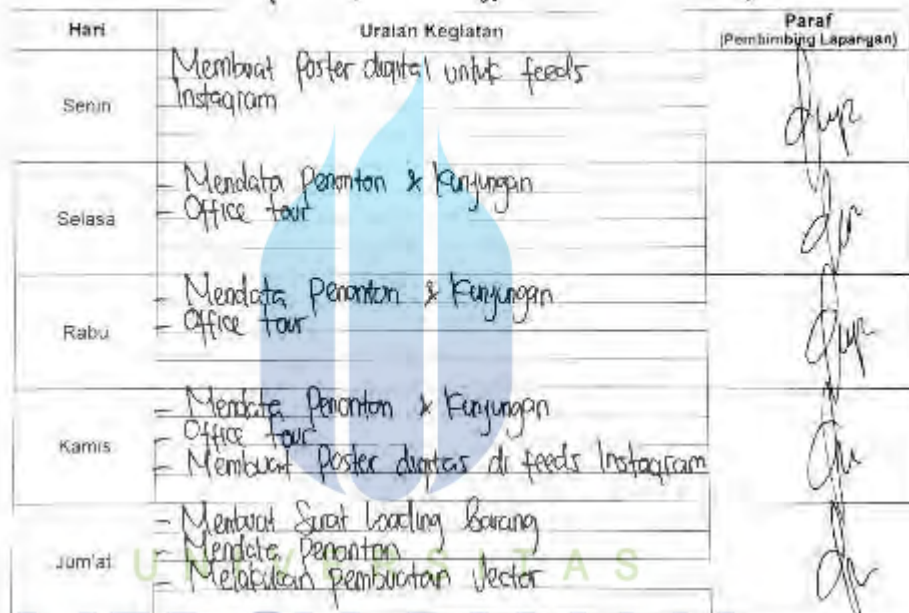 Hari Uraian Kegiatan Paraf
(Pembimbing Lapangan)
Senin
Membuat Poster digital untuk feeds
Instagram
Selasa
- Mendata Penonton & Kunjungan
- Office tour
Rabu
- Mendata Penonton & Kunjungan
- Office tour
Kamis
- Mendata Penonton & Kunjungan
- Office tour
- Membuat Poster digitas di feeds Instagram
Jum'at
- Membuat Surat Loading Barang
- Mendata Penonton
- Melakukan pembuatan Vector
UNIVERSITAS